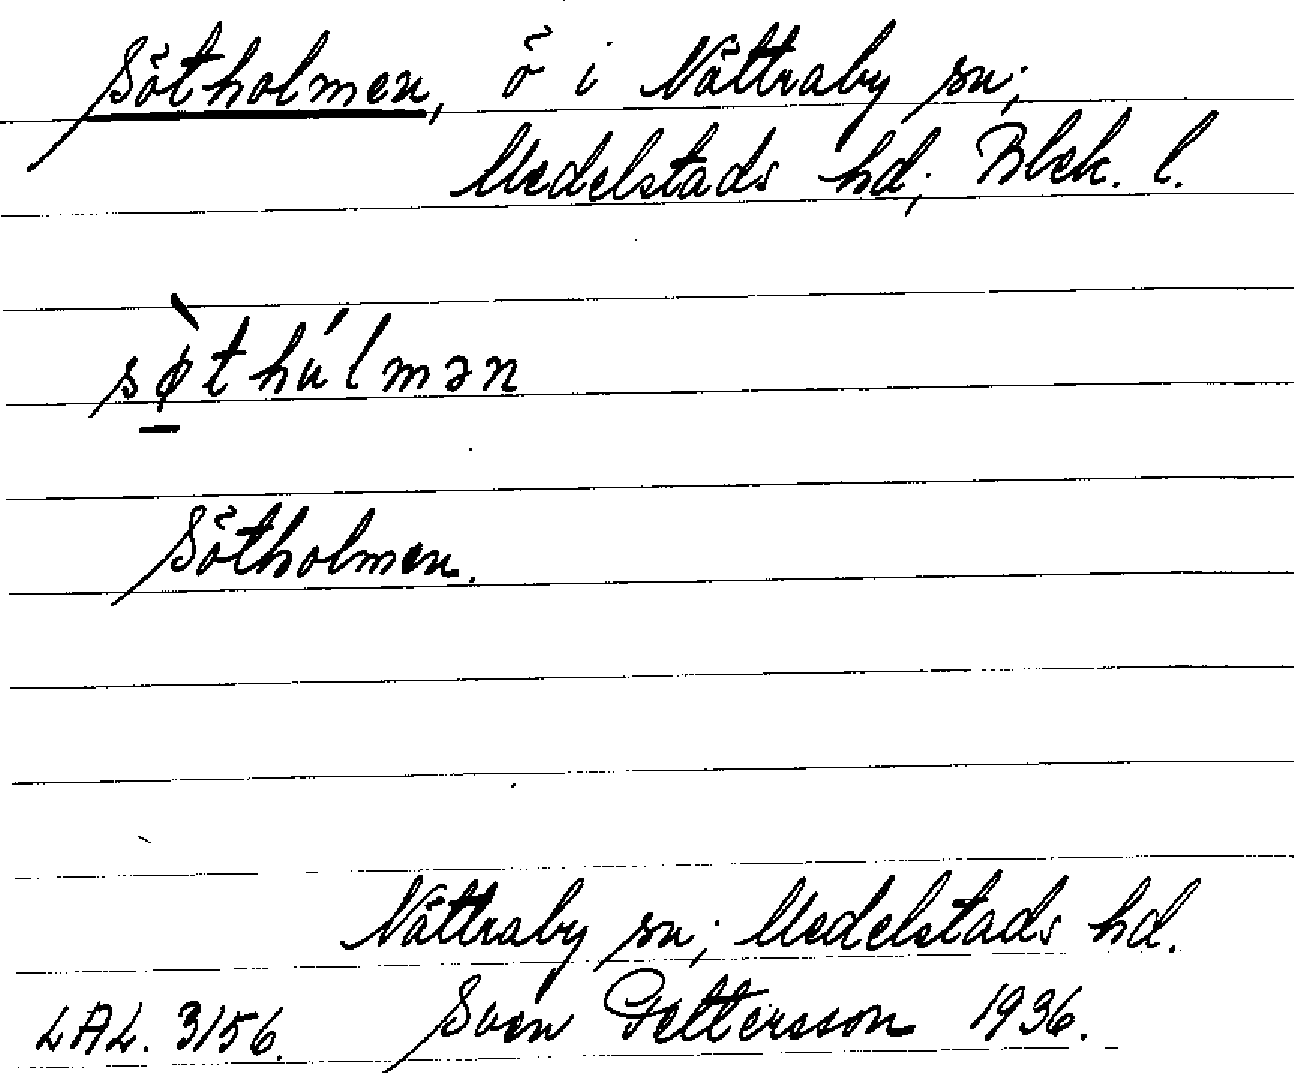 Sötholmen, ö i Nättraby sn;
Medelstads hd; Blek. l.
sø̀thúlmən
Sötholmen.
Nättraby sn; Medelstads hd.
LAL. 3156. Sven Pettersson 1936.